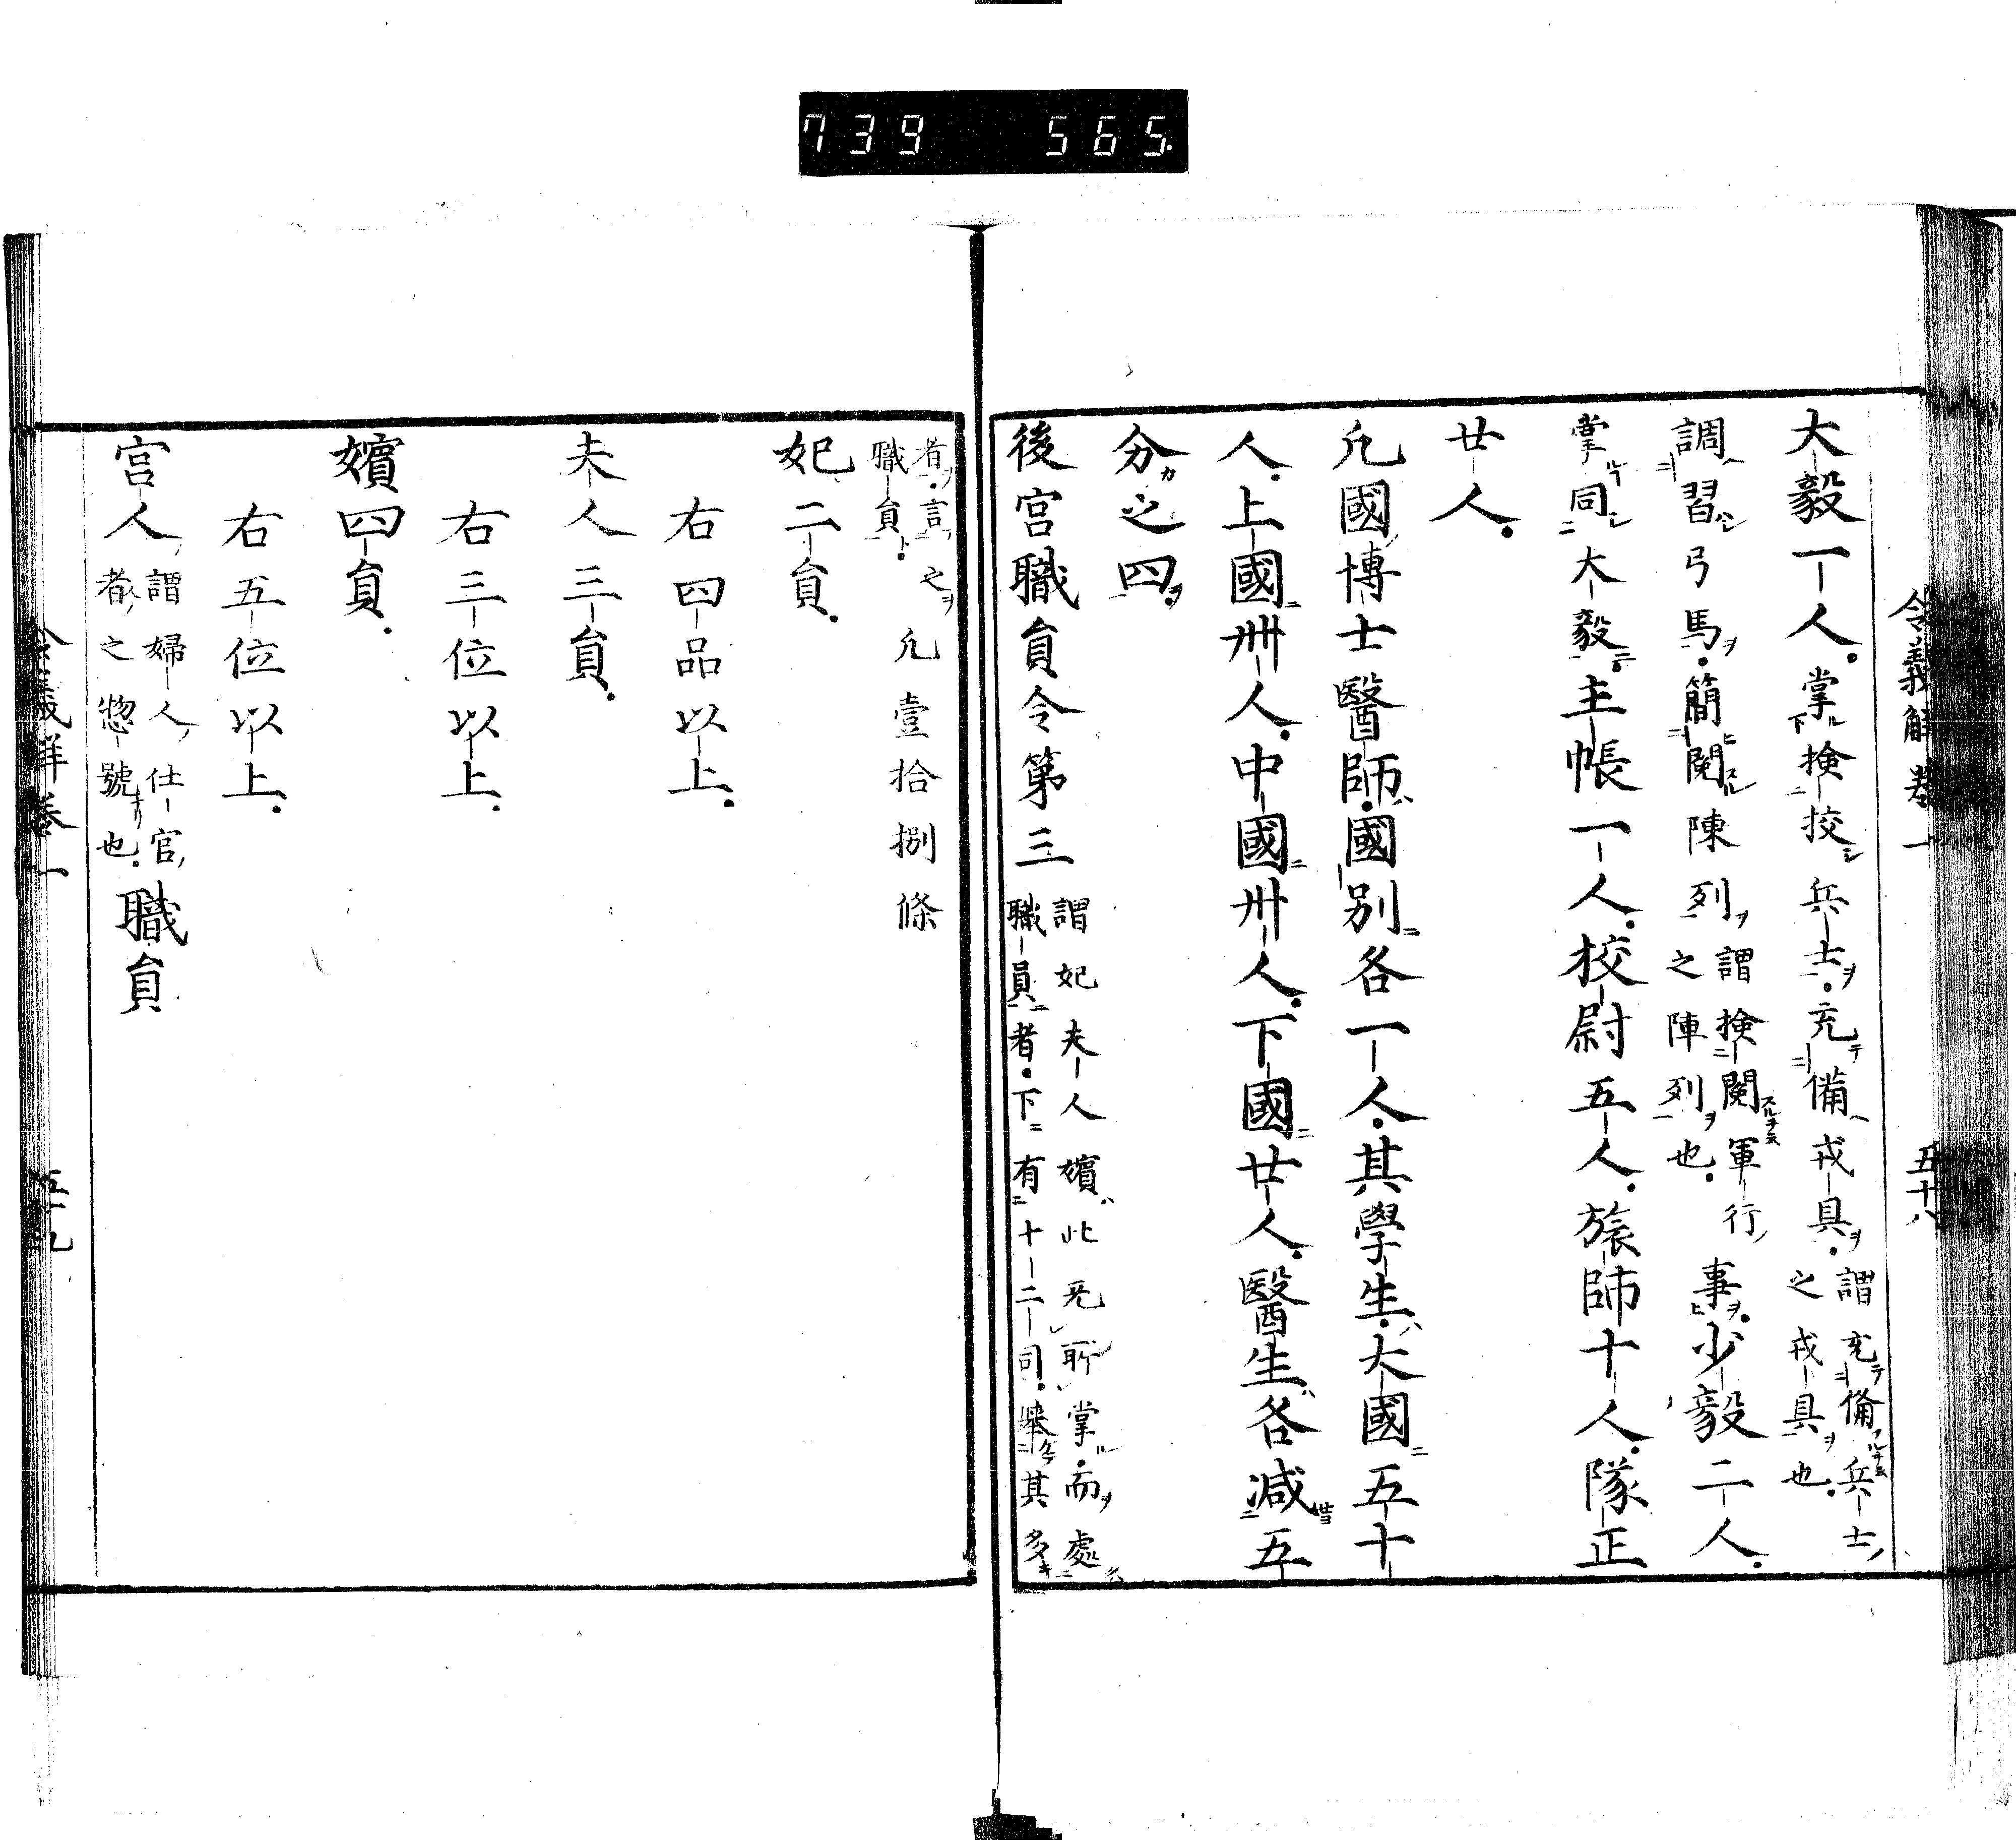 739 565.
令義解卷一 五十八
大毅一人掌撿挍兵士充備戎具謂充備兵士
之戎具也
調習弓馬簡閲陳列謂撿閲軍行
之陣列也事少毅二人
掌同大毅主帳一人校尉五人旅師十人隊正
廿人
凡國博士醫師國別各一人其學生大國五十
人上國卌人中國卅人下國廿人醫生各減五
分之四
後宮職員令第三謂妃夫人嬪此无所掌而處
職員者下有十二司舉其多
者言之
職員凡壹拾捌條
妃二員
右四品以上
夫人三員
右三位以上
嬪四員
右五位以上
宮人謂婦人仕官
者之惣號也職員
令義解卷一 五十九